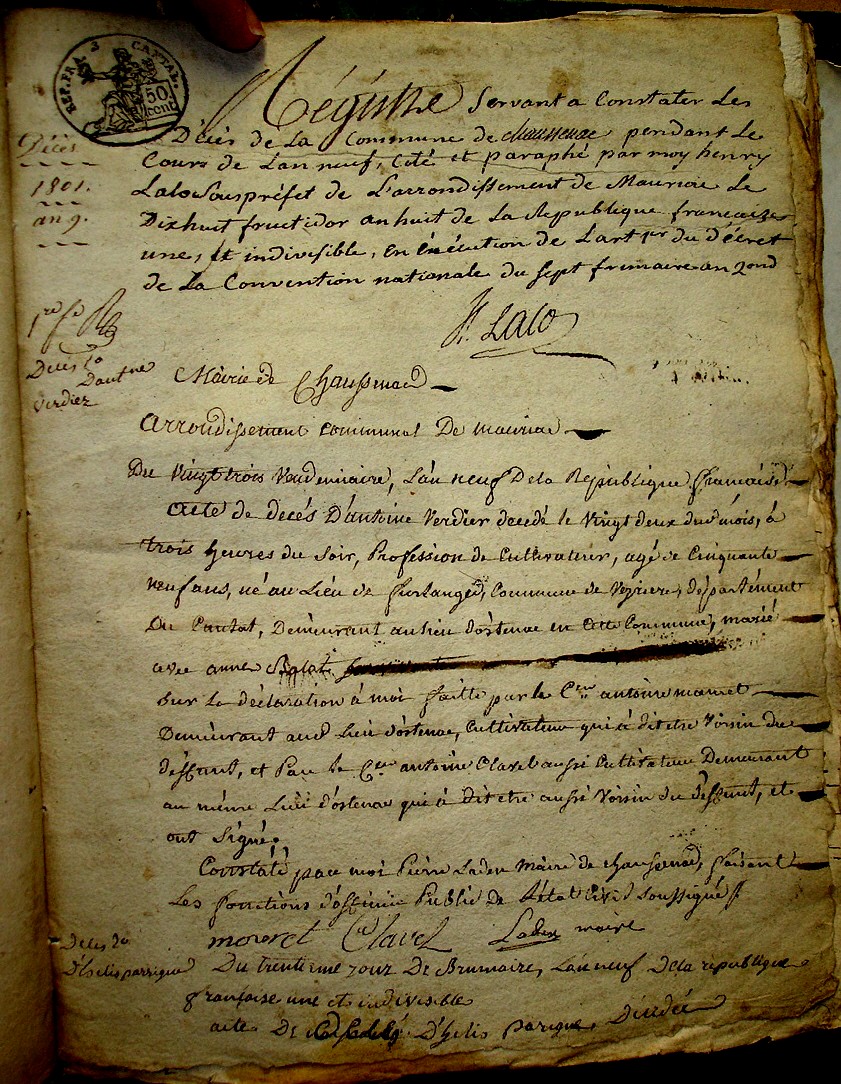 REP. FRA. 3 CANTAL.
50 cent
Régistre Servant a Constater Les
Décès de La Commune de chaussenac pendant Le
Cours de L'an neuf, Coté et paraphé par moy henry
Lalo Souspréfet de L'arrondissement de Mauriac Le
Dixhuit fructidor an huit de La République françaize
une, et indivisible, en éxécution de L'art 1er du Décret
de La Convention nationale du Sept frimaire an 2ond
H. Lalo
Décès
1801.
an 9.
1re
Déces
Dantne
Verdier
Mairie de Chaussenac
arrondissement communal De mauriac
Du Vingt trois Vendemiaire, L'an neuf De la République francaise
acte de decés D'antoine Verdier decedé le Vingt deux du mois, à
trois heures du Soir, Profession de Cultivateur, agé de Cinquante
neuf ans, né au Lieu de Commune de Veyrieres, département
Du Cantal, Demeurant au lieu d'ostenac en Cette Commune, marié
avec anne
Sur La déclaration à moi faitte par le Cen antoine
Demeurant aud Lieu d'ostenac, Cultivateur qui à dit etre Voisin du
deffunt, et Par le Cen antoine Clavel aussi Cultivateur Demeurant
au même Lieu d'ostenac qui à dit etre aussi Voisin du deffunt, et
ont Signé.
Constaté par moi Pierre Laden Maire de chaussenac, faisant
Les fonctions d'officier Public de L'état Civil Soussigné
Clavel Laden maire
Déces
D'helis parrique
Du trentieme jour De Brumaire, L'an neuf De la république
françaíse une et indivisible
acte De D'helis parique, Décédée